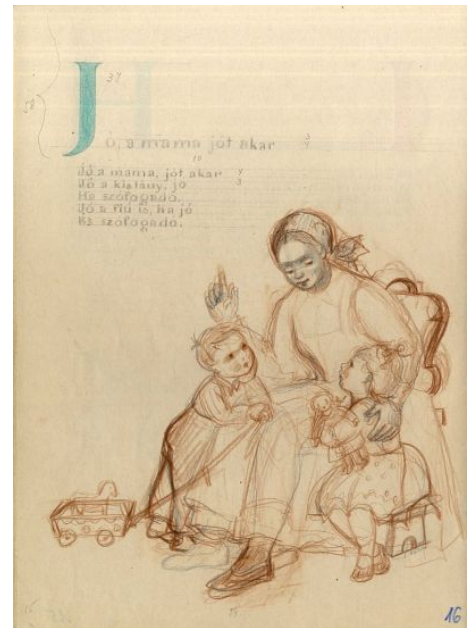 J 34
58
ó, a mama jót akar 3 4
10
Jó a mama, jót akar 4
Jó a kislány, jó 3
Ha szófogadó.
Jó a fiú is, ha jó
És szófogadó.
16